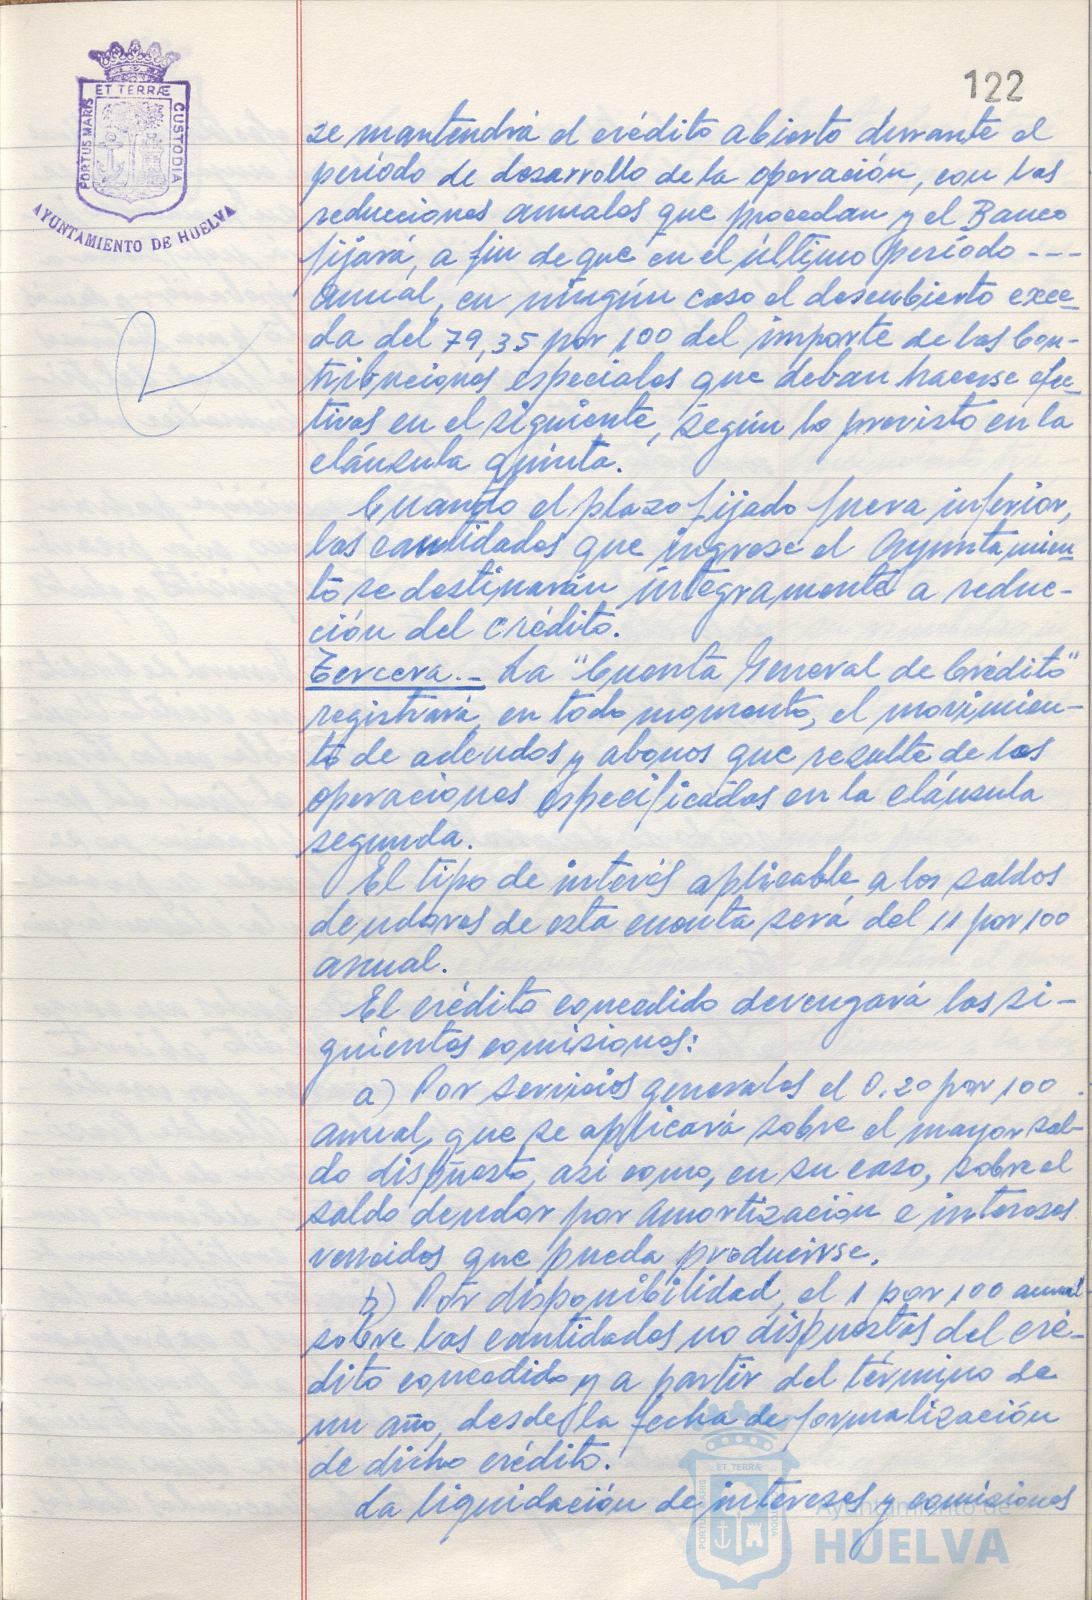 122
PORTUS MARIS ET TERRÆ CUSTODIA
AYUNTAMIENTO DE HUELVA
se mantendrá el crédito abierto durante el
período de desarrollo de la operación, con las
reducciones anuales que procedan y el Banco
fijará, a fin de que en el último período ---
anual, en ningún caso el descubierto exce-
da del 79,35 por 100 del importe de las Con-
tribuciones especiales que deban hacerse efec-
tivas en el siguiente, según lo previsto en la
cláusula quinta.
Cuando el plazo fijado fuera inferior,
las cantidades que ingrese el Ayuntamien-
to se destinarán íntegramente a reduc-
ción del crédito.
Tercera.- La "Cuenta General de Crédito"
registrará, en todo momento, el movimien-
to de adeudos y abonos que resulte de las
operaciones especificadas en la cláusula
segunda.
El tipo de interés aplicable a los saldos
deudores de esta cuenta será del 11 por 100
anual.
El crédito concedido devengará las si-
guientes comisiones:
a) Por servicios generales el 0.20 por 100
anual, que se aplicará sobre el mayor sal-
do dispuesto, así como, en su caso, sobre el
saldo deudor por amortización e intereses
vencidos que pueda producirse.
b) Por disponibilidad, el 1 por 100 anual
sobre las cantidades no dispuestas del cré-
dito concedido y a partir del término de
un año, desde la fecha de formalización
de dicho crédito.
La liquidación de intereses y comisiones
PORTUS MARIS ET TERRÆ CUSTODIA
Ayuntamiento de
HUELVA